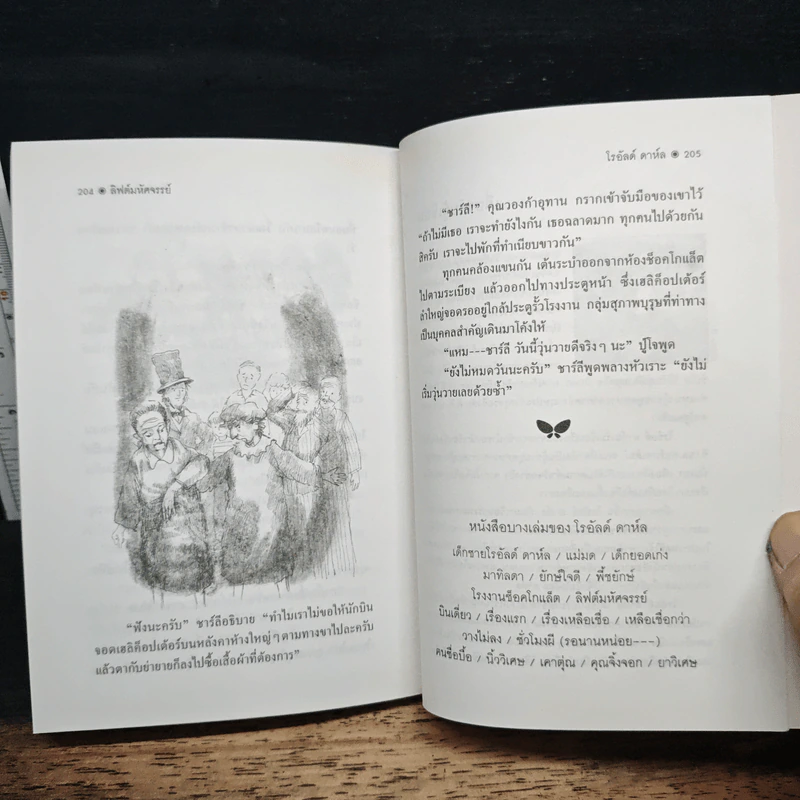 204 ◉ ลิฟต์มหัศจรรย์
"ฟังนะครับ" ชาร์ลีอธิบาย "ทำไมเราไม่ขอให้นักบิน
จอดเฮลิค็อปเต้อร์บนหลังคาห้างใหญ่ๆ ตามทางขาไปละครับ
แล้วตากับย่ายายก็ลงไปซื้อเสื้อผ้าที่ต้องการ"
โรอัลด์ ดาห์ล ◉ 205
"ชาร์ลี!" คุณวองก้าอุทาน กรากเข้าจับมือของเขาไว้
"ถ้าไม่มีเธอ เราจะทำยังไงกัน เธอฉลาดมาก ทุกคนไปด้วยกัน
สิครับ เราจะไปพักที่ทำเนียบขาวกัน"
ทุกคนคล้องแขนกัน เต้นระบำออกจากห้องช็อคโกแล็ต
ไปตามระเบียง แล้วออกไปทางประตูหน้า ซึ่งเฮลิค็อปเต้อร์
ลำใหญ่จอดรออยู่ใกล้ประตูรั้วโรงงาน กลุ่มสุภาพบุรุษที่ท่าทาง
เป็นบุคคลสำคัญเดินมาโค้งให้
"แหม---ชาร์ลี วันนี้วุ่นวายดีจริงๆ นะ" ปู่โจพูด
"ยังไม่หมดวันนะครับ" ชาร์ลีพูดพลางหัวเราะ "ยังไม่
เริ่มวุ่นวายเลยด้วยซ้ำ"
หนังสือบางเล่มของ โรอัลด์ ดาห์ล
เด็กชายโรอัลด์ ดาห์ล / แม่มด / เด็กยอดเก่ง
มาทิลดา / ยักษ์ใจดี / พี้ชยักษ์
โรงงานช็อคโกแล็ต / ลิฟต์มหัศจรรย์
บินเดี่ยว / เรื่องแรก / เรื่องเหลือเชื่อ / เหลือเชื่อกว่า
วางไม่ลง / ชั่วโมงผี (รอนานหน่อย---)
คนซื่อบื้อ / นิ้ววิเศษ / เคาตุ่ณ / คุณจิ้งจอก / ยาวิเศษ